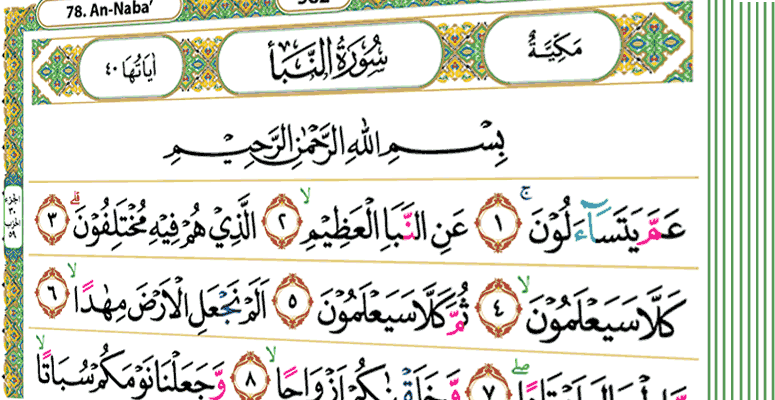 78. An-Naba’
582
مَكِّيَّةٌ سُورَةُ النَّبَأ اٰيَاتُهَا ٤٠
بِسْمِ اللهِ الرَّحْمٰنِ الرَّحِيْمِ
عَمَّ يَتَسَآءَلُوْنَ ۚ ١ عَنِ النَّبَاِ الْعَظِيْمِۙ ٢ الَّذِيْ هُمْ فِيْهِ مُخْتَلِفُوْنَۗ ٣
كَلَّا سَيَعْلَمُوْنَۙ ٤ ثُمَّ كَلَّا سَيَعْلَمُوْنَ ٥ اَلَمْ نَجْعَلِ الْاَرْضَ مِهٰدًاۙ ٦
٧ وَّخَلَقْنٰكُمْ اَزْوَاجًاۙ ٨ وَّجَعَلْنَا نَوْمَكُمْ سُبَاتًاۙ
الجزء ٣٠
الحزب ٥٩